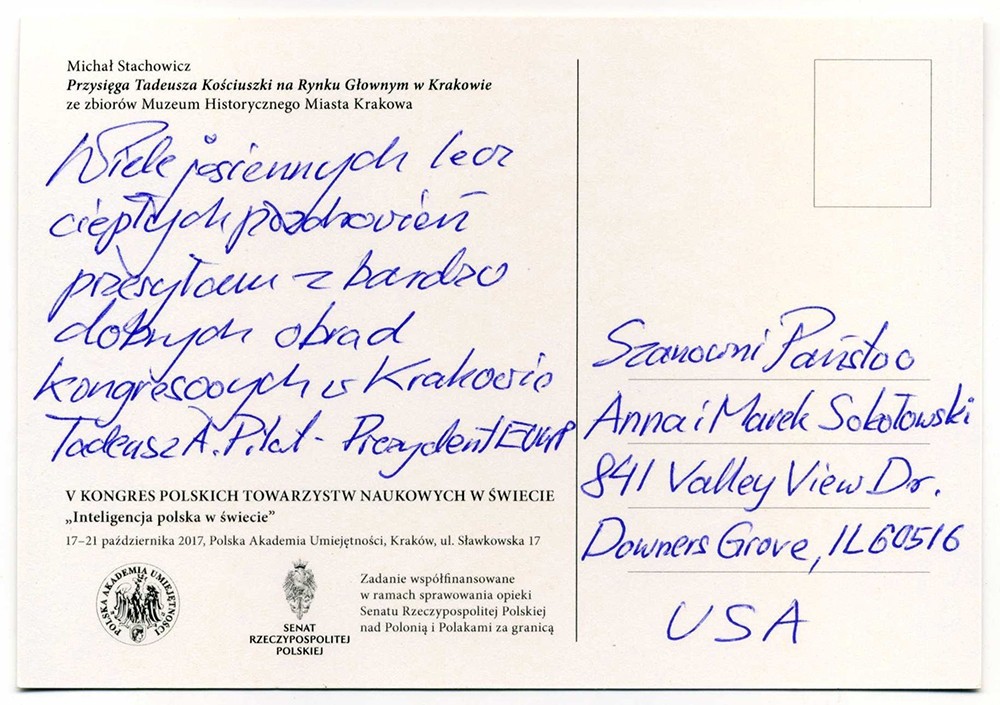 Michał Stachowicz
Przysięga Tadeusza Kościuszki na Rynku Głownym w Krakowie
ze zbiorów Muzeum Historycznego Miasta Krakowa
Wiele jesiennych lecz
ciepłych pozdrowień
przesyłam z bardzo
dobrych obrad
kongresowych w Krakowie
Tadeusz A. Pilat - Prezydent EUWP
V KONGRES POLSKICH TOWARZYSTW NAUKOWYCH W ŚWIECIE
„Inteligencja polska w świecie”
17–21 października 2017, Polska Akademia Umiejętności, Kraków, ul. Sławkowska 17
POLSKA AKADEMIA UMIEJĘTNOŚCI
SENAT
RZECZYPOSPOLITEJ
POLSKIEJ
Zadanie współfinansowane
w ramach sprawowania opieki
Senatu Rzeczypospolitej Polskiej
nad Polonią i Polakami za granicą
Szanowni Państwo
Anna i Marek Sokołowski
841 Valley View Dr.
Downers Grove, IL 60516
USA